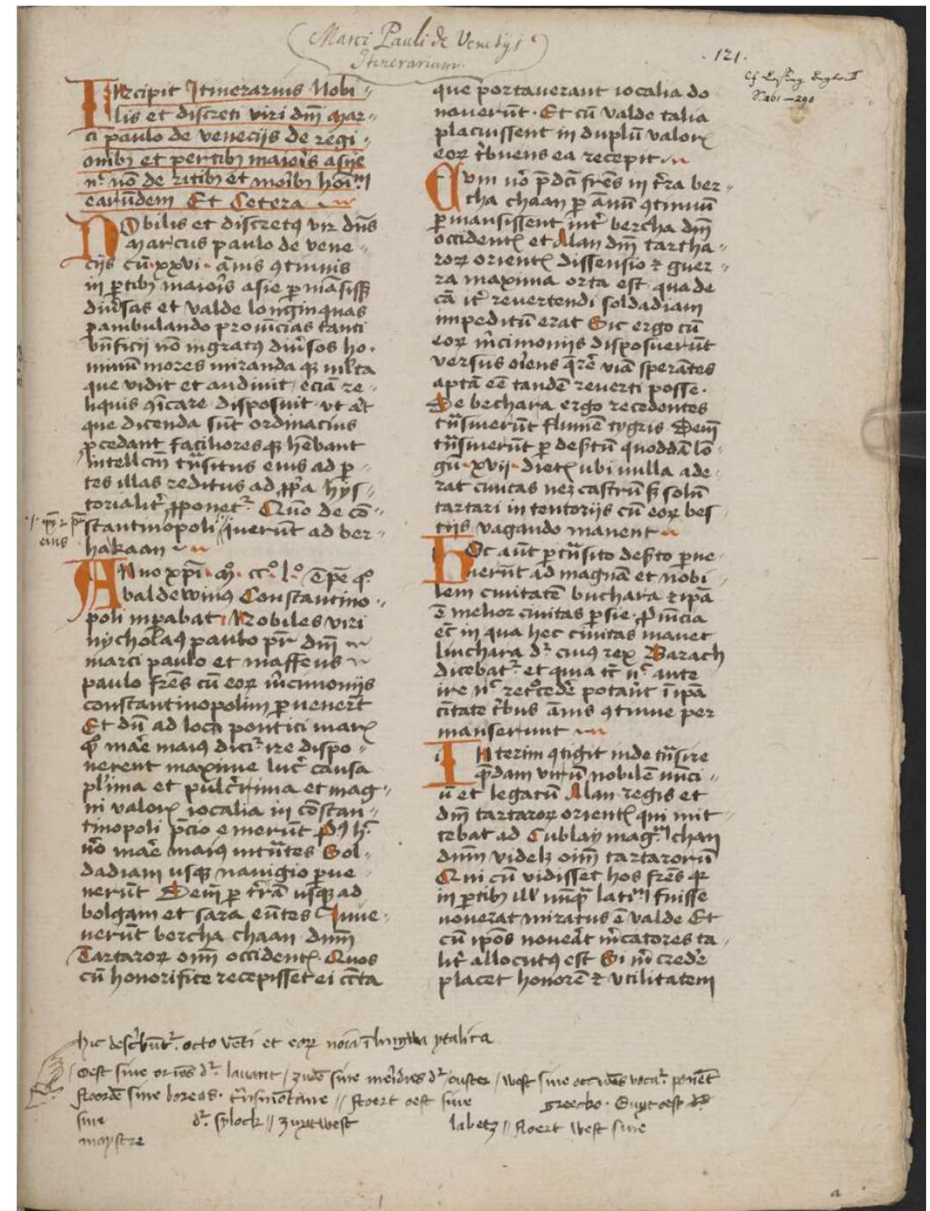 Marci Pauli de Venetijs
Itinerarium.
121.
S. 261–290
Incipit Itinerarius Nobi
lis et discreti viri dn̄i mar
ci paulo de venecijs de regi
onibꝫ et partibꝫ maioris asye
nc̄ nō de ritibꝫ et moribꝫ hoīm
earundem Et Cetera
Nobilis et discretꝰ vir dn̄s
Marcus paulo de vene
cijs cū xxvi annis ꝯtinuis
in ꝑtibꝫ maioris asie ꝑmāsiss
diūsas et valde longinquas
ꝑambulando prouīcias tanti
bn̄ficij nō ingratꝰ diūsos ho
minū mores miranda qꝫ mlta
que vidit et audiuit eciā re
liquis ꝯicare disposuit vt at
que dicenda sūt ordinacius
ꝓcedant faciliores qꝫ hēbant
intellcm̄ trāsitus eius ad ꝑ
tes illas reditus ad ꝓpa hijs
torialit ꝓponet Quō de cō
stantinopoli iuerūt ad ber
hakaan
eius
Anno xp̄i mo cco lo tp̄e qo
baldewinus Constantino
poli inpabat Nobiles viri
nycholaꝰ paulo pr̄ dn̄i
marci paulo et maffeus
paulo fr̄es cū eoꝝ mc̄imonijs
constantinopolim ꝑuenert
Et dū ad loca pontici marꝭ
qd mar̄e maius dicit ire dispo
nerent maxime lucri causa
pl̄ima et pulcr̄rima et mag
ni valorꝭ iocalia in cōstan
tinopoli p̄cio emerūt ꝑ h
nō mar̄e maiꝰ intrātes Sol
dadiam usqꝫ nauigio ꝑue
nerūt Deīn ꝑ tr̄ā usqꝫ ad
bolgam et sara eūtes Inue
nerūt bercha chaan dn̄m
Tartaroꝝ om̄i occidentꝭ Quos
cū honorifice recepisset ei cūta
que portauerant iocalia do
nauerūt Et cū valde talia
placuissent in duplū valorꝭ
eoꝝ tribuens ea recepit
Cum nō p̄dc̄i fr̄es in tr̄a ber
cha chaan ꝑ annū ꝯtinuū
ꝑmansissent int bercha dn̄m
occidentꝭ et Alan dn̄m tartha
roꝝ orientꝭ dissensio ⁊ guer
ra maxima orta est qua de
cā it reuertendi soldadiam
impeditū erat Sic ergo cū
eoꝝ mc̄imonijs disposuerūt
versus oriens q̄re viā sperātes
aptā eē tandē reuerti posse
De bechara ergo recedentes
trāsiuerūt flumē tygris Deīn
trāsiuerūt ꝑ desertū quoddā lō
gū xvij dietꝭ ubi nulla ade
rat ciuitas neqꝫ castrū sꝫ solū
tartari in tentorijs cū eoꝝ bes
tijs vagando manent
Hoc aūt ꝑtrāsito deserto ꝑue
nerūt ad magnā et nobi
lem ciuitatē buchara ⁊ ipā
ē melior ciuitas ꝑsie ꝓuīcia
eē in qua hec ciuitas manet
buchara dr̄ cuius rex Barach
dicebat et qua tr̄ nc̄ ante
ire nc̄ retrocede potāūt ī ipā
citate tribus annis ꝯtinue per
manserunt
Interim ꝯtigit inde trāsire
quēdam virū nobilē nūci
ū et legatū Alan regis et
dn̄i tartaroꝝ orientꝭ qui mit
tebat ad Cublay magnū chan
dn̄m videlꝫ oīm tartarorū
Qui cū vidisset hos fr̄es qꝫ
in ꝑtibꝫ ill nūqꝫ latini fuisse
nouerat miratus ē valde Et
cū ip̄os nouerāt mc̄atores ta
lit allocutꝰ est Si m̄ crede
placet honorē ⁊ vtilitatem
hic describūt octo vēti et eoꝝ noīa ī lingwa ytalica
Oest siue oriēs dr̄ lauant / zude siue meridies dr̄ ouster / west siue occidēs vocat ponent
Noorde siue boreas trāsmōtane // Noert oest siue greecbo Suytoest
siue dr̄ sylock // zuytwest labetz // Noert west siue
maystre
a